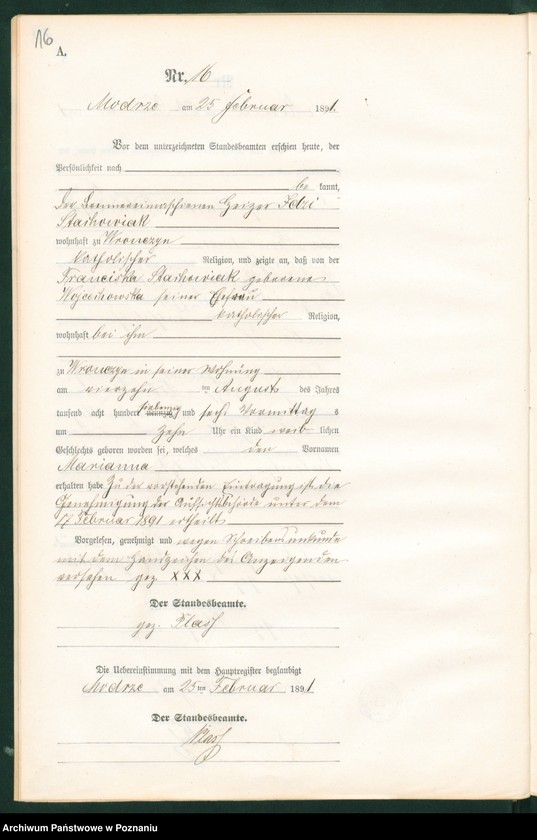 16
A.
Nr. 16
Modrze am 25 Februar 1891.
Vor dem unterzeichneten Standesbeamten erschien heute, der
Persönlichkeit nach
be kannt,
der Heizer
Stachowiak
wohnhaft zu Wronczyn
katholischer Religion, und zeigte an, daß von der
Franciska Stachowiak geborene
Wojcichowska seiner Ehefrau
katholischer Religion,
wohnhaft bei ihm
zu Wronczyn in seiner Wohnung
am vierzehn ten August des Jahres
tausend acht hundert siebenzig und sechs Vormittag s
um zehn Uhr ein Kind weib lichen
Geschlechts geboren worden sei, welches den Vornamen
Marianna
erhalten habe Zu der vorstehenden Eintragung ist die
Genehmigung der Aufsichtsbehörde unter dem
17 Februar 1891 ertheilt
Vorgelesen, genehmigt und wegen Schreibensunkunde
mit dem Handzeichen des Anzeigenden
versehen gez XXX
Der Standesbeamte.
gez.
Die Uebereinstimmung mit dem Hauptregister beglaubigt
Modrze am 25 ten Februar 1891.
Der Standesbeamte.
Archiwum Państwowe w Poznaniu